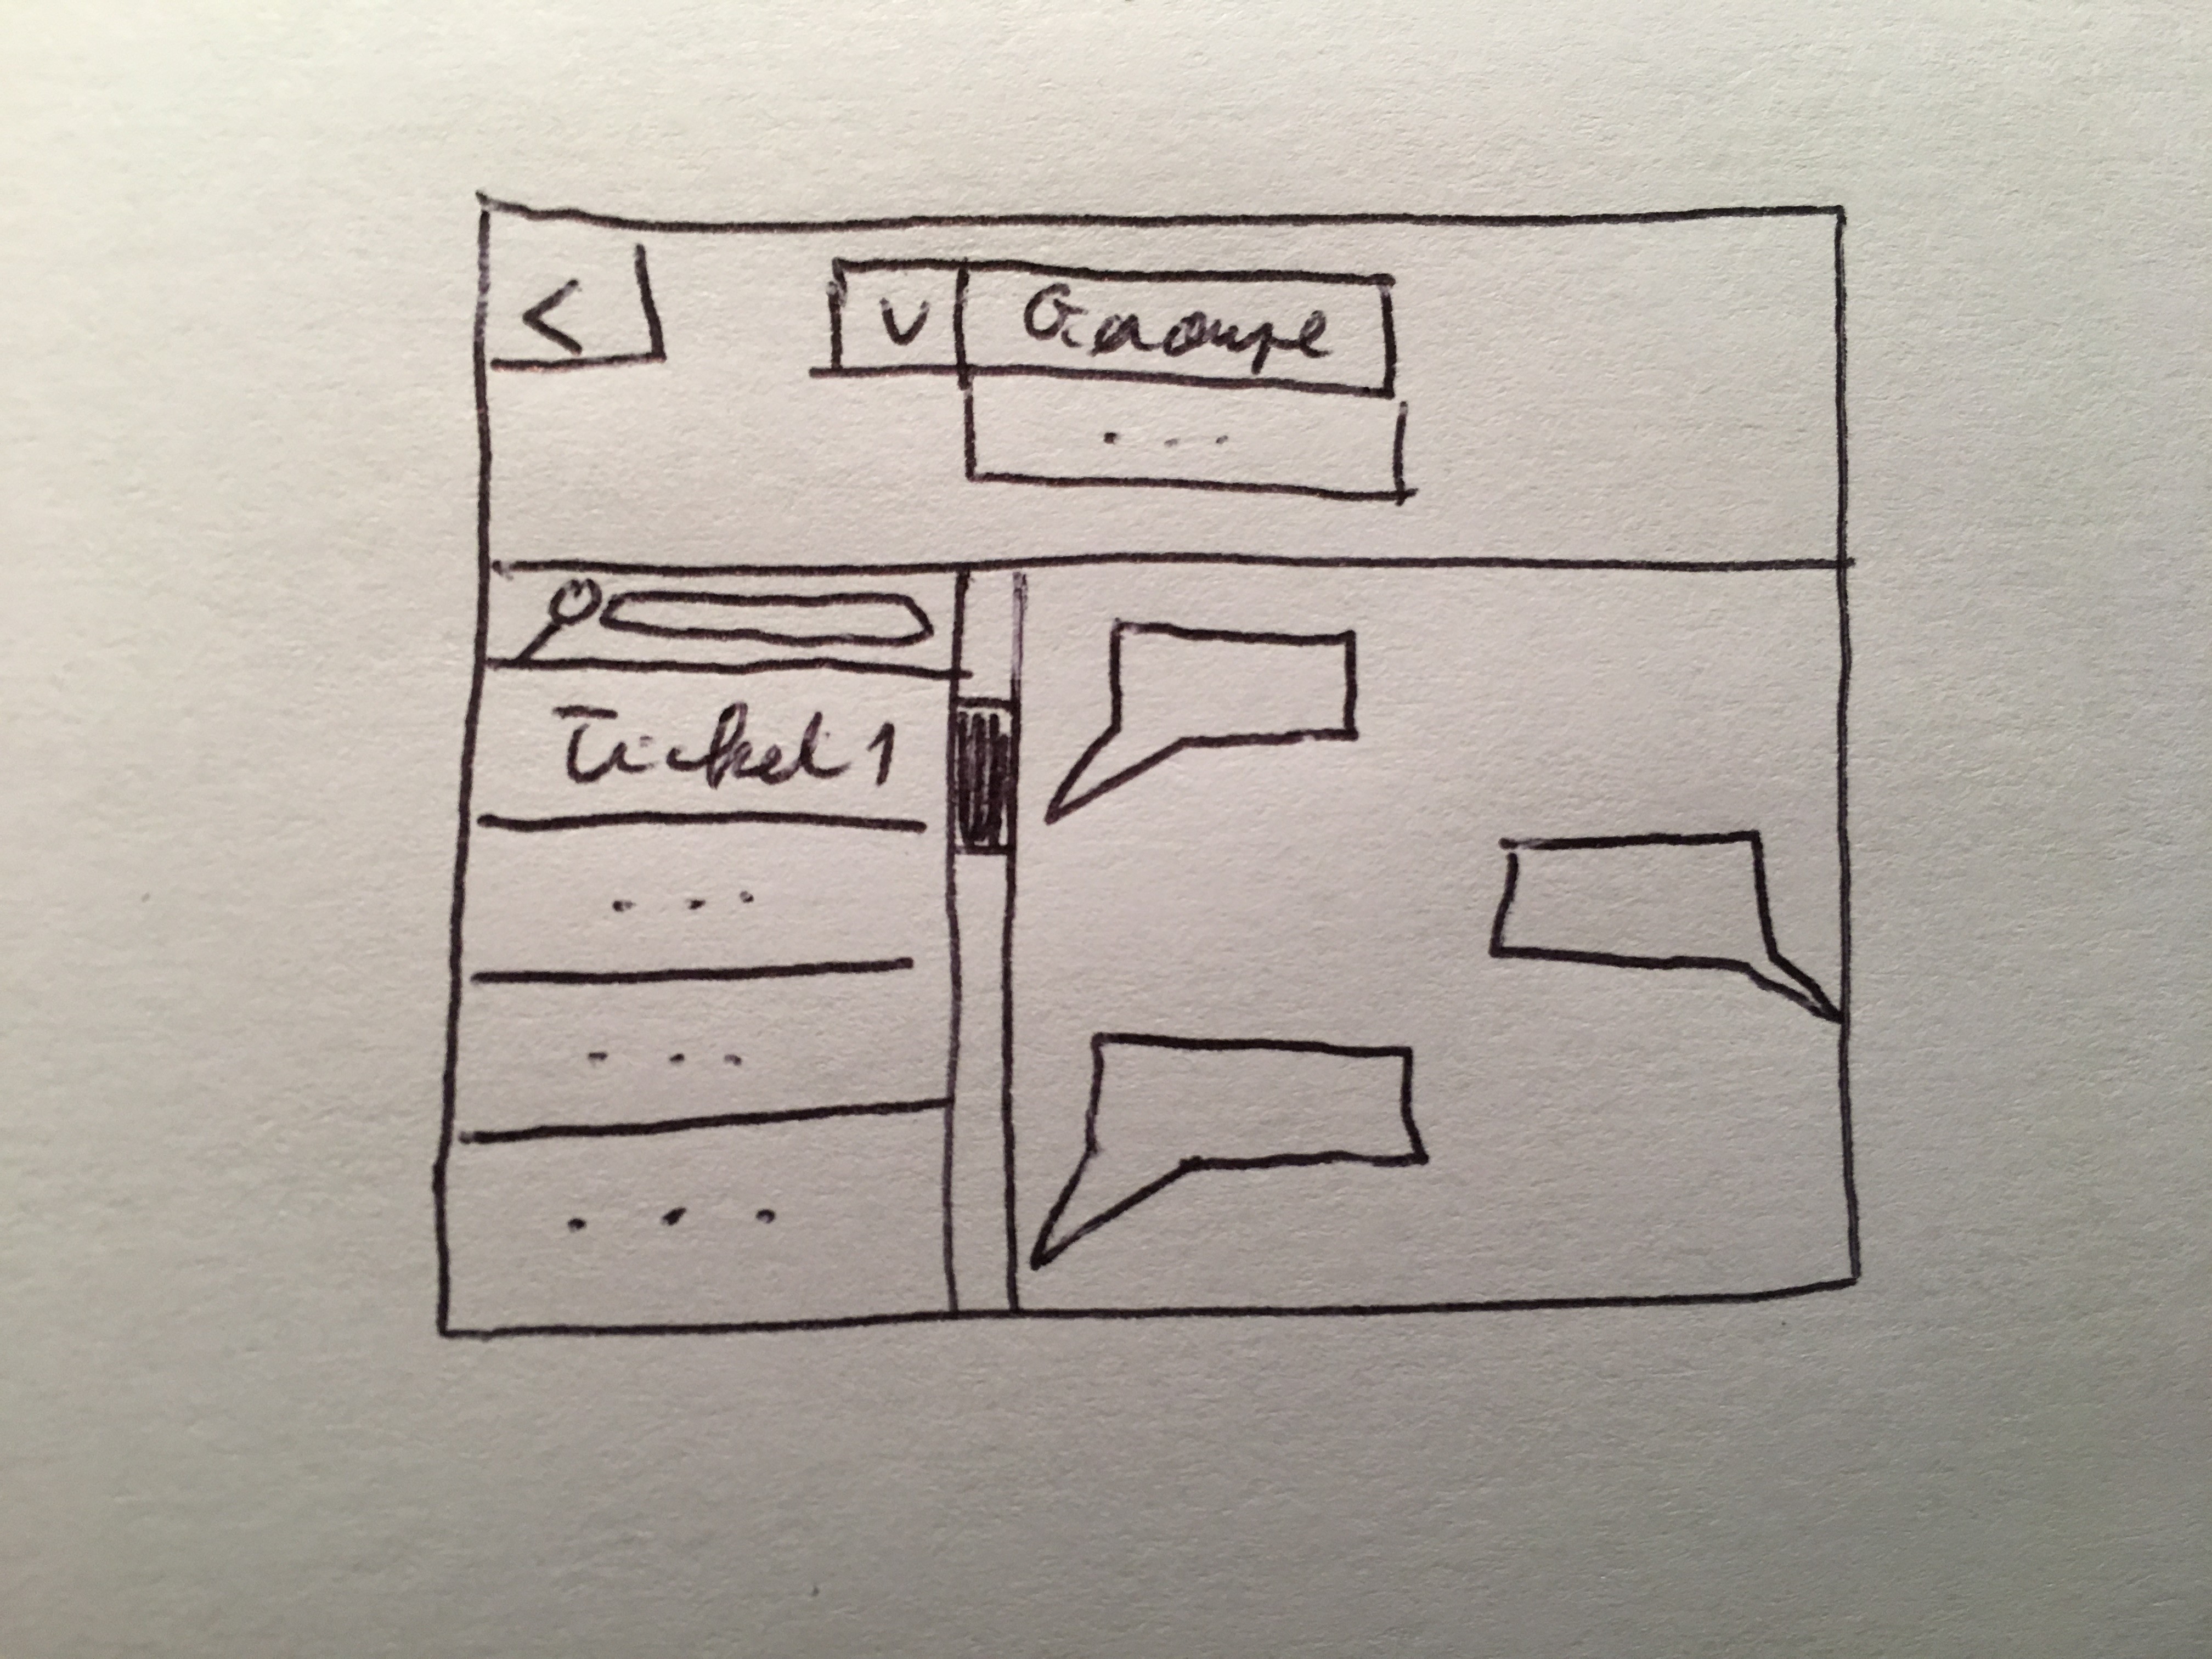 < V Groupe
...
Ticket 1
...
...
...